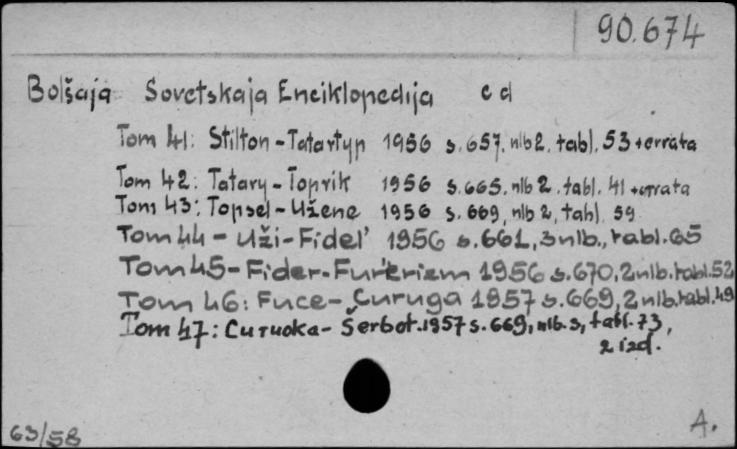 90.674
Bolšaja Sovetskaja Enciklopedija c d
Tom 41: Stilton-Tatartyp 1956 s.657, nlb 2. tabl. 53 + errata
Tom 42: Tatary-Toprik 1956 s.665. nlb 2. tabl. 41 + errata
Tom 43: Topsel-Užene 1956 s.669, nlb 2, tabl. 59
Tom 44 - Uži-Fidel' 1956 s.661, 3 nlb., tabl.65
Tom 45-Fider-Fur'erizm 1956 s.670, 2 nlb.tabl.52
Tom 46: Fuce-Čuruga 1957 s.669, 2 nlb.tabl.49
Tom 47: - Šerbot.1957 s.669, nlb.3, tabl.73,
2 izd.
63/58 A.